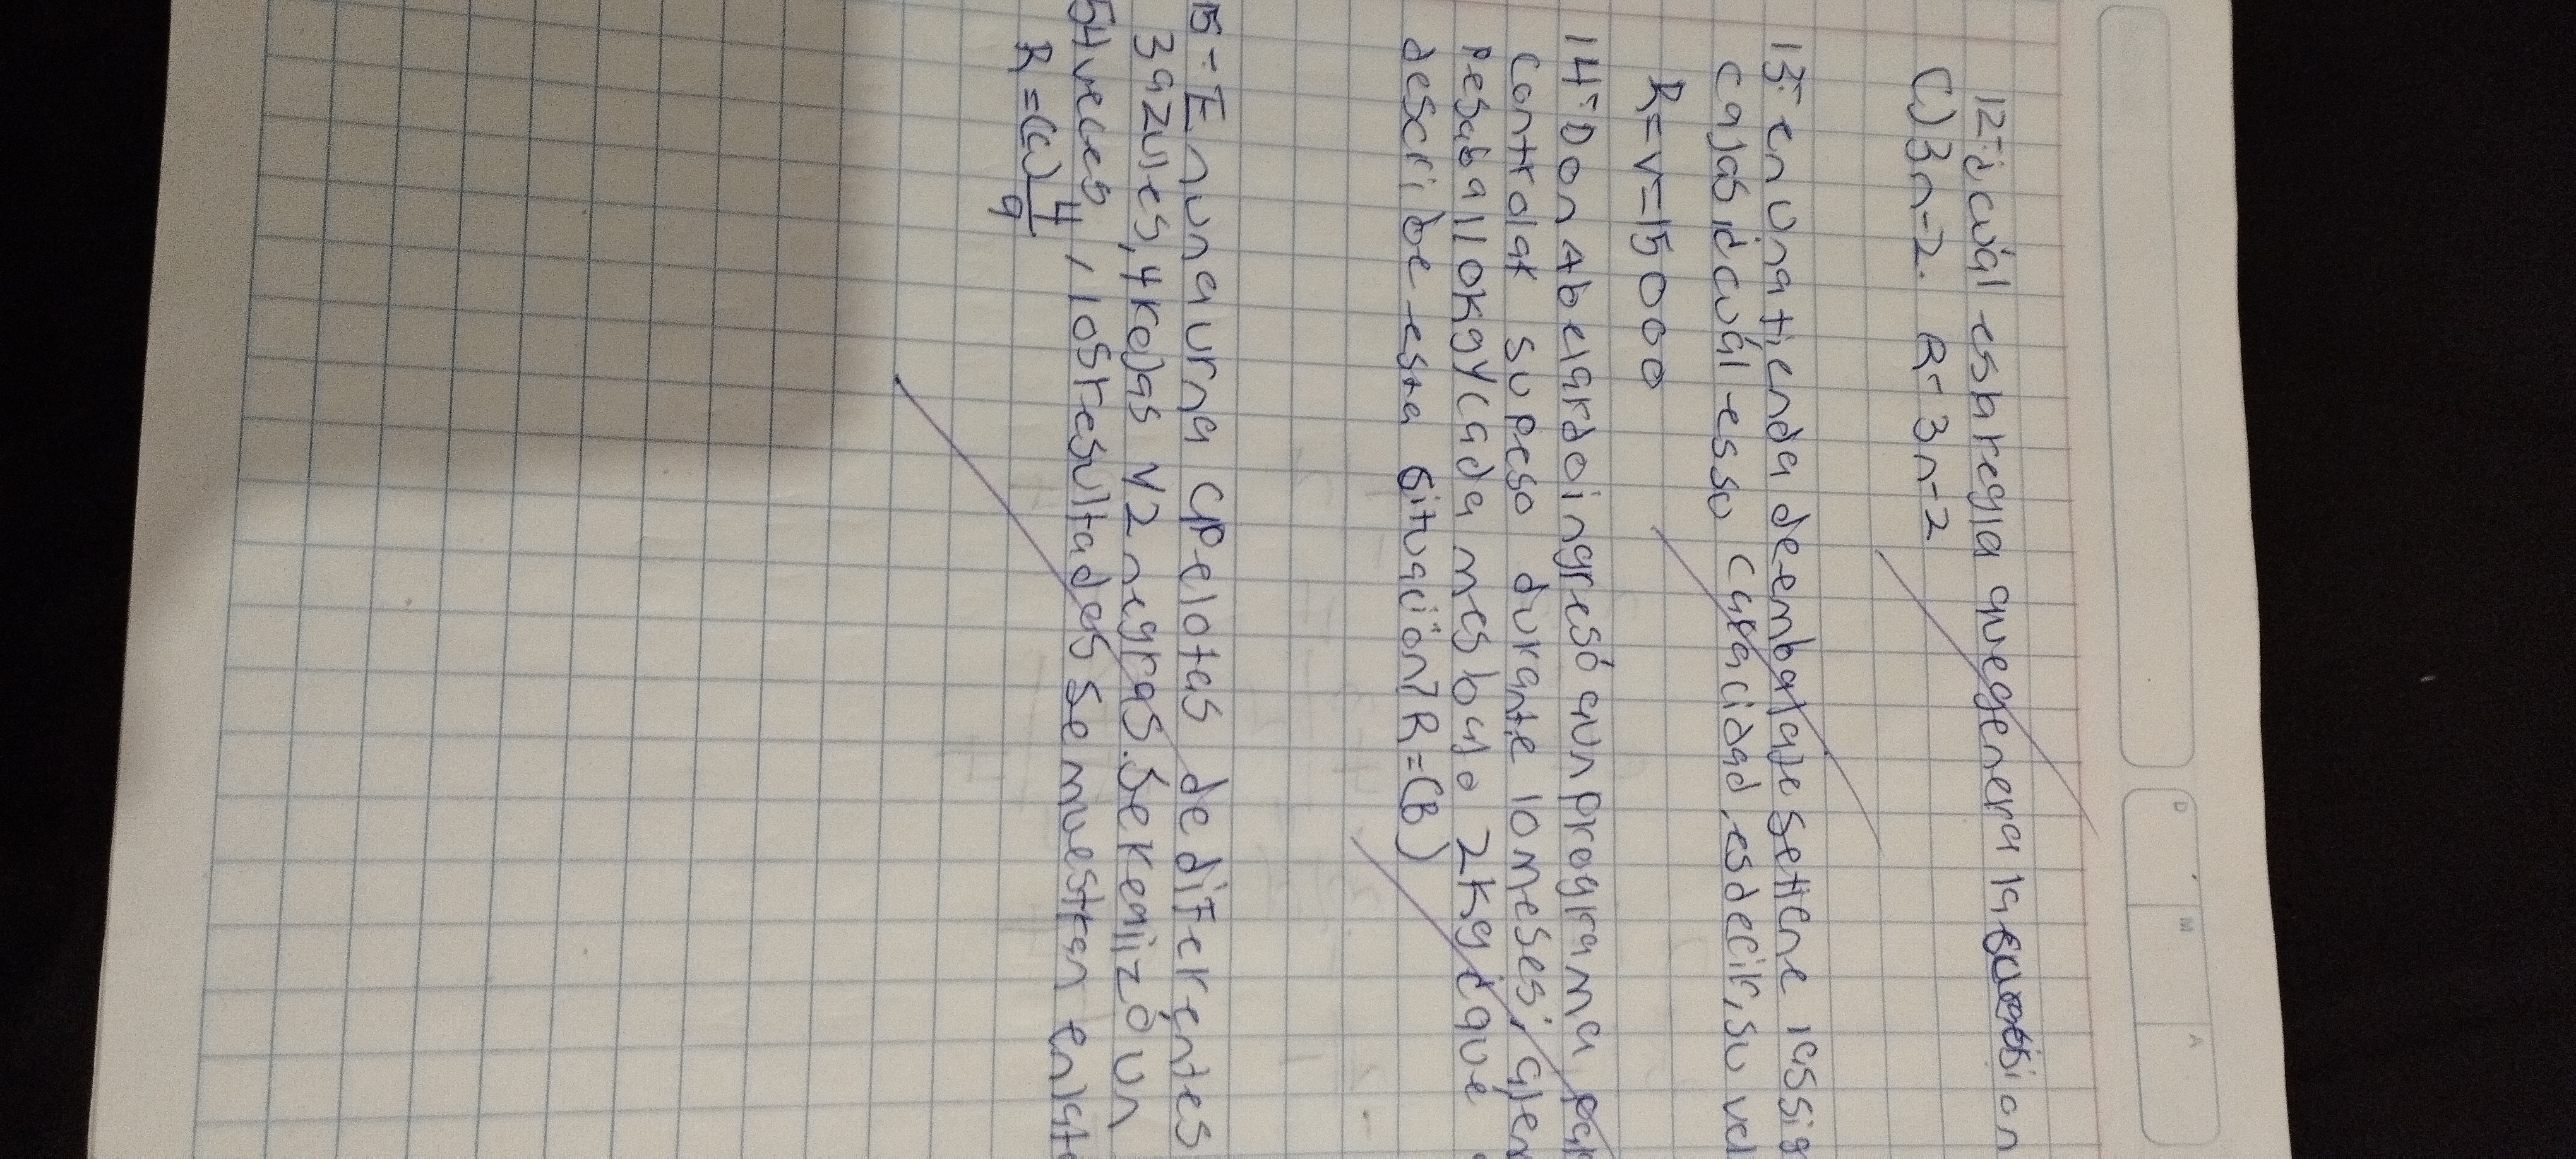 D M A
12-¿cuál es la regla que genera la sucesion
C) 3n-2. R= 3n-2
13- en una tienda de embalaje se tiene las sig
cajas ¿cuál es su capacidad, es decir, su vol
R= v=15000
14- Don Abelardo ingresó a un programa par
controlar su peso durante 10 meses;
pesaba 110kg y cada mes bajo 2kg ¿que
describe esta situación? R=(B)
15- En una urna pelotas de diferentes
3 azules, 4 rojas y 2 negras. Se realizó un
54 veces, los resultados se muestran en la
R=(C) 4/9